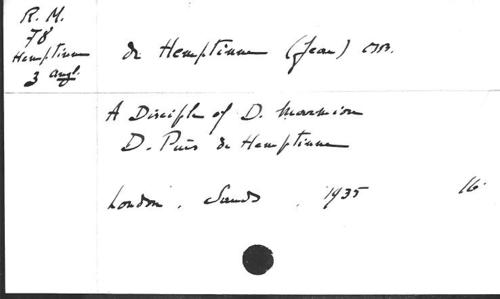 R. M.
78
Hemptinne
3 angl.
de Hemptinne (Jean) OSB.
A Disciple of D. Marmion
D. Pius de Hemptinne
London, Sands, 1935 16